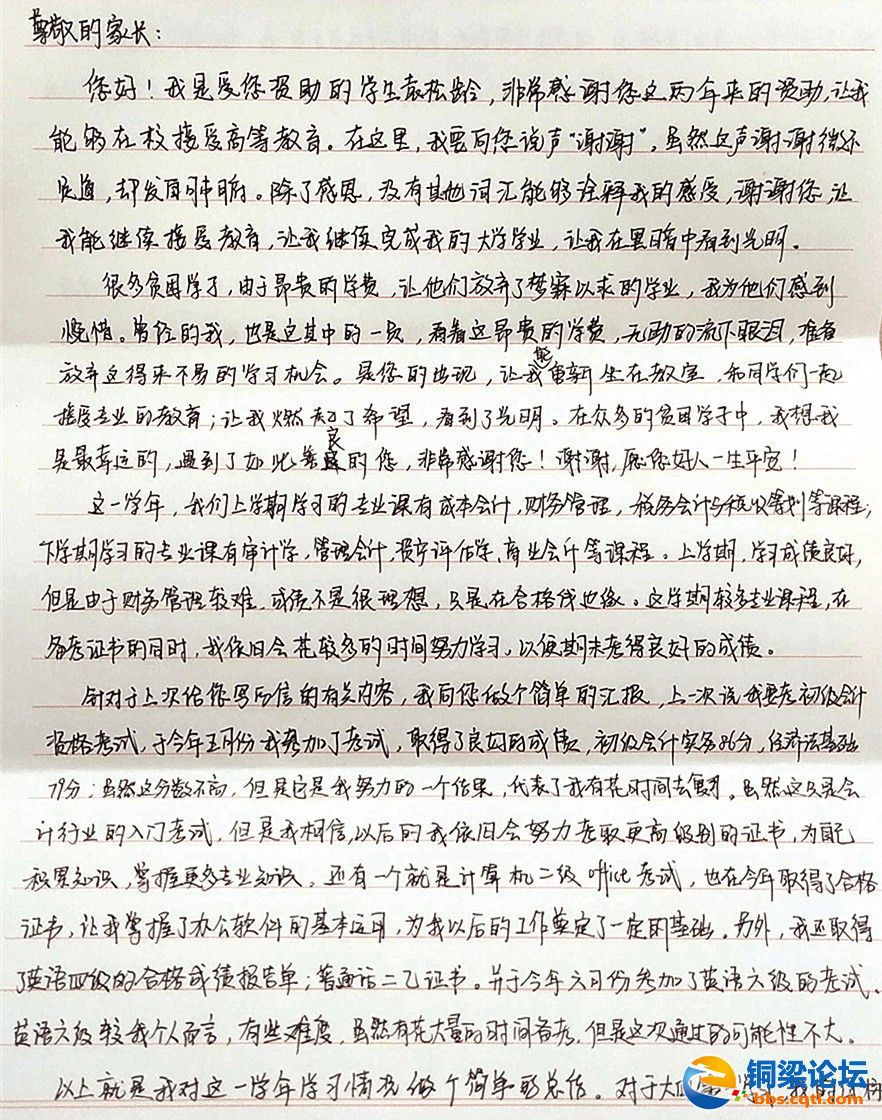 尊敬的家长：
您好！我是受您资助的学生袁松龄，非常感谢您这两年来的资助，让我
能够在校接受高等教育。在这里，我要向您说声“谢谢”，虽然这声谢谢微不
足道，却发自肺腑。除了感恩，没有其他词汇能够诠释我的感受，谢谢您，让
我能继续接受教育，让我继续完成我的大学学业，让我在黑暗中看到光明。
很多贫困学子，由于昂贵的学费，让他们放弃了梦寐以求的学业，我为他们感到
惋惜。曾经的我，也是这其中的一员，看着这昂贵的学费，无助的流下眼泪，准备
放弃这得来不易的学习机会。是您的出现，让我能重新坐在教室，和同学们一起
接受专业的教育；让我燃起了希望，看到了光明。在众多的贫困学子中，我想我
是最幸运的，遇到了如此善良的您，非常感谢您！谢谢，愿您好人一生平安！
这一学年，我们上学期学习的专业课有成本会计，财务管理，税务会计与税收筹划等课程；
下学期学习的专业课有审计学，管理会计，资产评估学，商业会计等课程。上学期，学习成绩良好，
但是由于财务管理较难，成绩不是很理想，只是在合格线边缘。这学期较多专业课程，在
备考证书的同时，我依旧会花较多的时间努力学习，以便期末考得良好的成绩。
针对于上次给您写的信的有关内容，我向您做个简单的汇报，上一次说我要考初级会计
资格考试，于今年五月份我参加了考试，取得了良好的成绩，初级会计实务86分，经济法基础
79分；虽然这分数不高，但是它是我努力的一个结果，代表了我有花时间去复习。虽然这只是会
计行业的入门考试，但是我相信，以后的我依旧会努力考取更高级别的证书，为自己
积累知识，掌握更多专业知识。还有一个就是计算机二级office考试，也在今年取得了合格
证书，让我掌握了办公软件的基本运用，为我以后的工作奠定了一定的基础。另外，我还取得
了英语四级的合格成绩报告单；普通话二乙证书。并于今年六月份参加了英语六级的考试，
英语六级较我个人而言，有些难度，虽然有花大量的时间备考，但是这次通过的可能性不大。
以上就是我对这一学年学习情况做个简单的总结。对于大四
铜梁论坛
bbs.cqtl.com